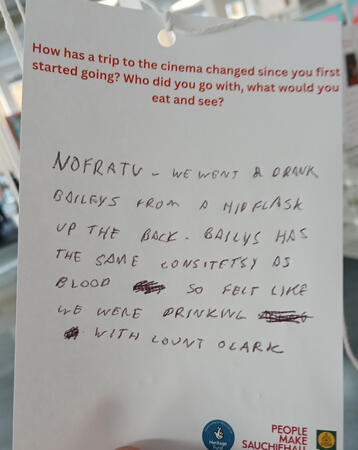 How has a trip to the cinema changed since you first
started going? Who did you go with, what would you
eat and see?
NOFRATU - WE WENT & DRANK
BAILEYS FROM A HIP FLASK
UP THE BACK. BAILYS HAS
THE SAME CONSITETSY AS
BLOOD SO FELT LIKE
WE WERE DRINKING
WITH COUNT OLARK
Heritage
Fund
PEOPLE
MAKE
SAUCHIEHALL